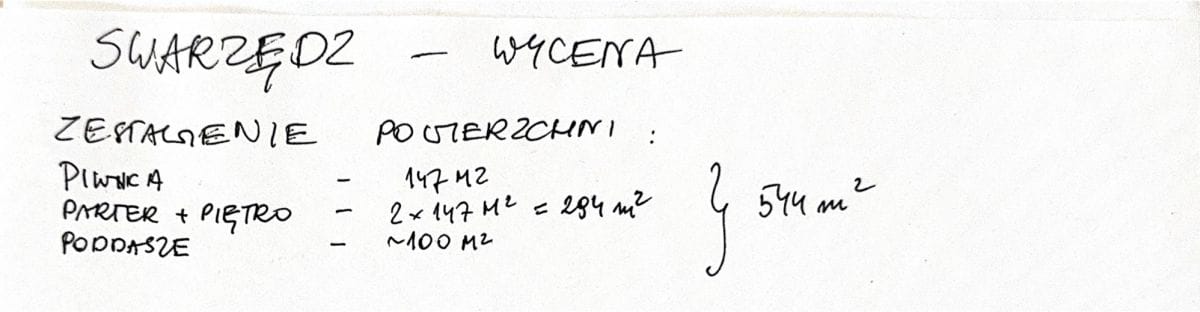 SWARZĘDZ – WYCENA
ZESTAWIENIE POWIERZCHNI :
PIWNICA – 147 M2
PARTER + PIĘTRO – 2 x 147 M² = 294 m² } 544 m²
PODDASZE – ~100 M2